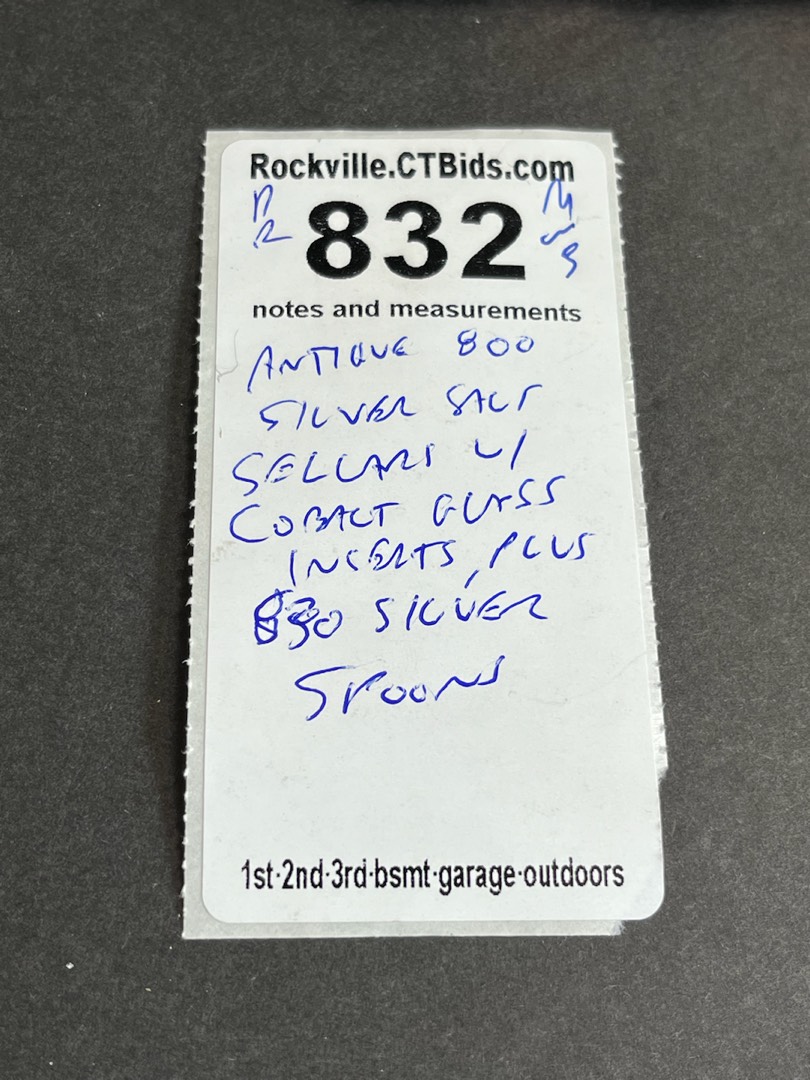 Rockville.CTBids.com
832
notes and measurements
ANTIQUE 800
SILVER SALT
SELLARS W/
COBALT GLASS
INSERTS, PLUS
830 SILVER
SPOONS
1st·2nd·3rd·bsmt·garage·outdoors